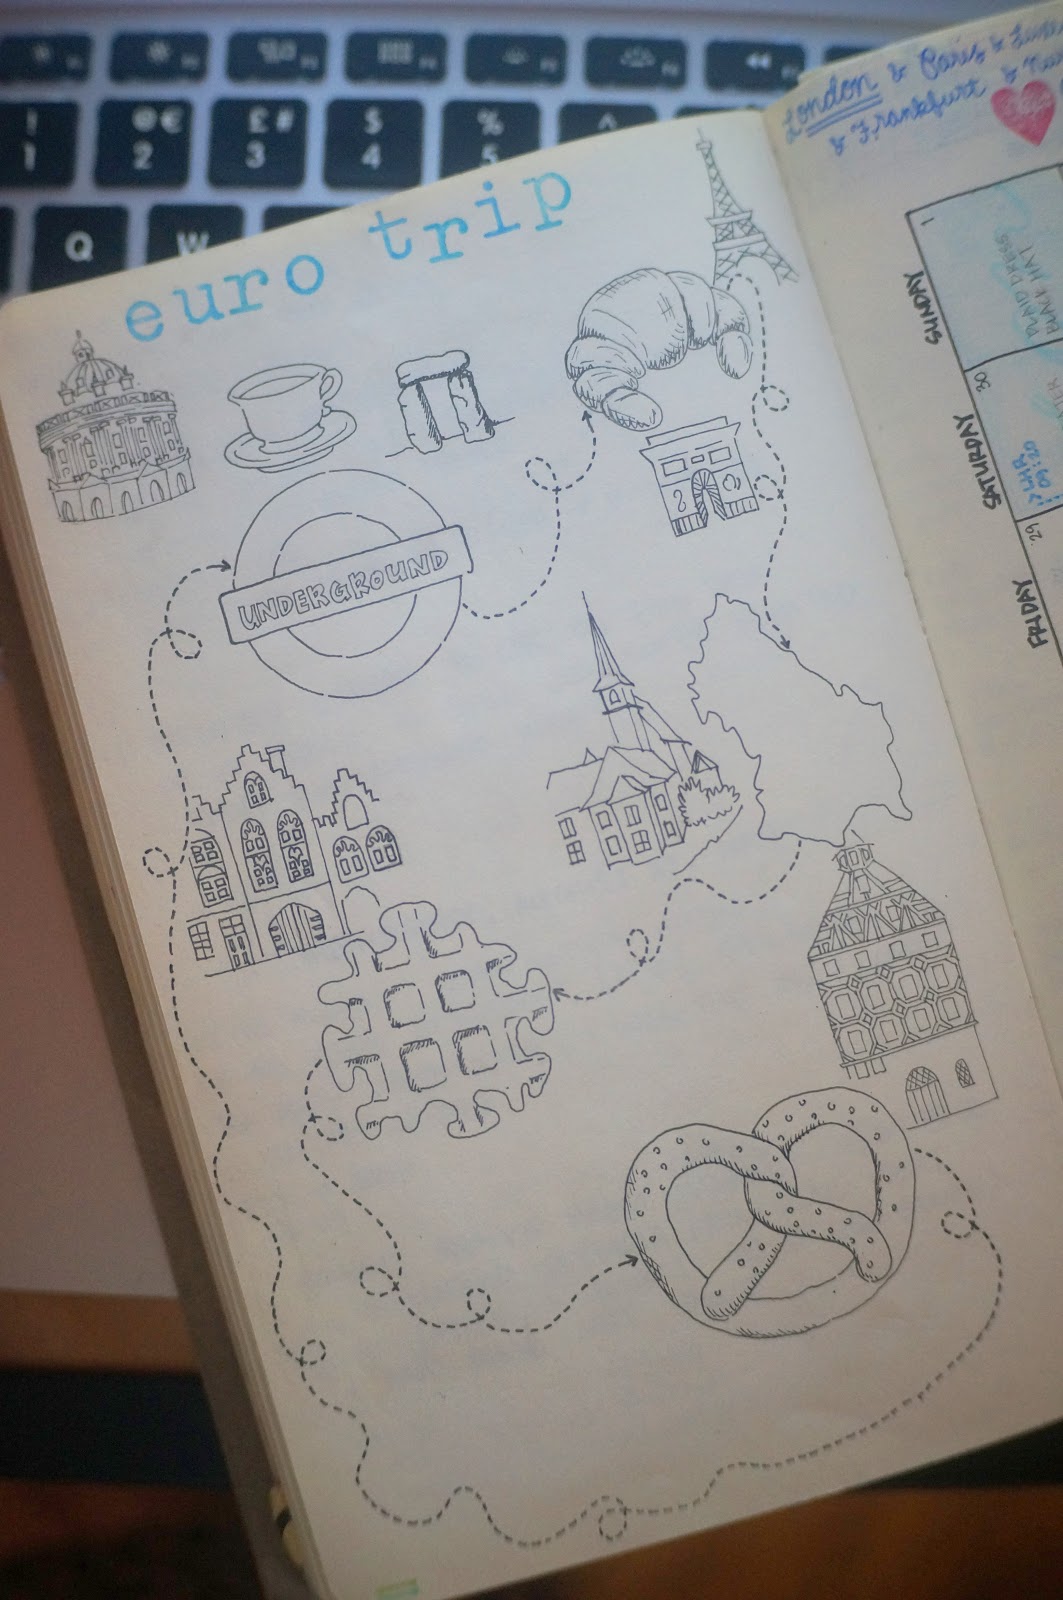 euro trip
UNDERGROUND
London & Paris &
& Frankfurt &
SUNDAY
1
PLAID DRESS
BLACK HAT
SATURDAY
30
LHR
09:20
FRIDAY
29
!
1
@ €
2
£ #
3
$
4
%
5
^
Q
W